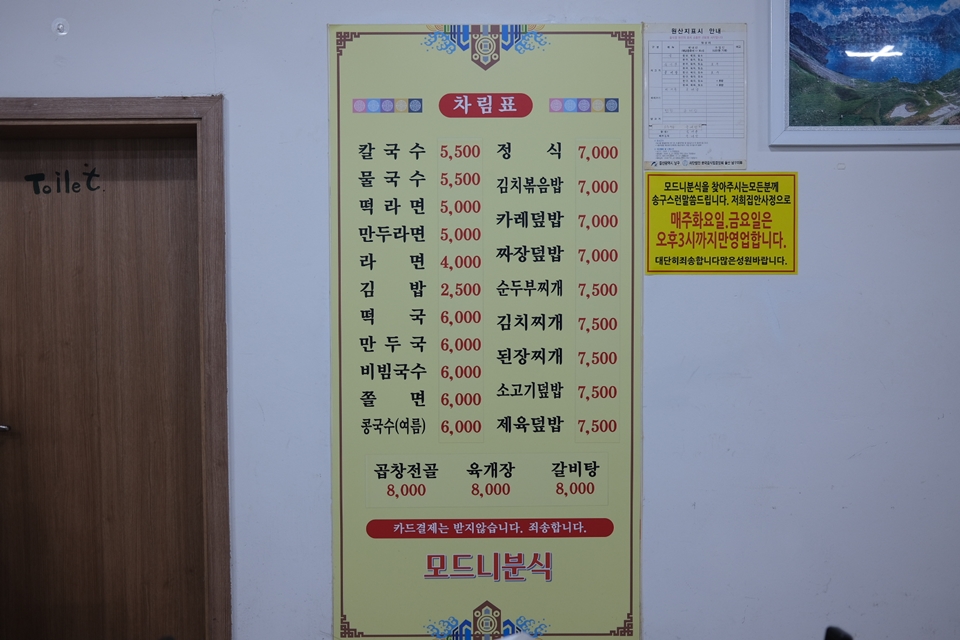 Toilet
차림표
칼국수 5,500
물국수 5,500
떡라면 5,000
만두라면 5,000
라면 4,000
김밥 2,500
떡국 6,000
만두국 6,000
비빔국수 6,000
쫄면 6,000
콩국수(여름) 6,000
정식 7,000
김치볶음밥 7,000
카레덮밥 7,000
짜장덮밥 7,000
순두부찌개 7,500
김치찌개 7,500
된장찌개 7,500
소고기덮밥 7,500
제육덮밥 7,500
곱창전골 육개장 갈비탕
8,000 8,000 8,000
카드결제는 받지않습니다. 죄송합니다.
모드니분식
원산지표시 안내
모드니분식을 찾아주시는모든분께
송구스런말씀드립니다. 저희집안사정으로
매주화요일.금요일은
오후3시까지만영업합니다.
대단히죄송합니다많은성원바랍니다.